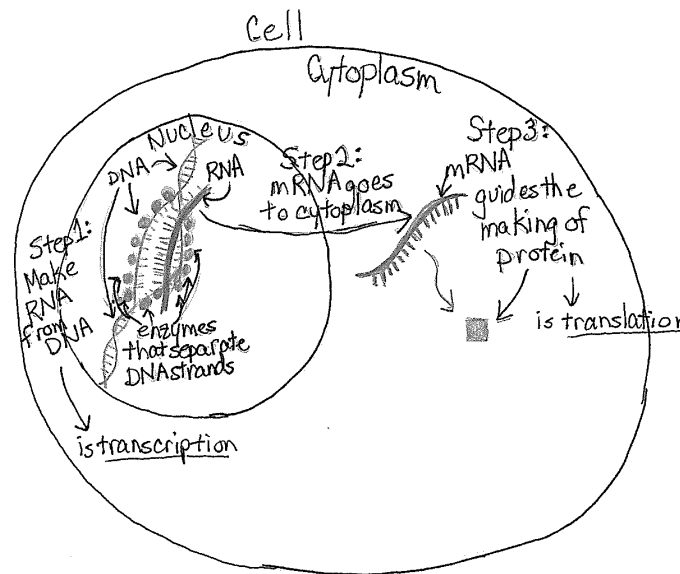 Cell
Cytoplasm
Nucleus
DNA
RNA
Step1:
Make
RNA
from
DNA
is transcription
enzymes
that separate
DNA strands
Step2:
mRNA goes
to cytoplasm
Step3:
mRNA
guides the
making of
protein
is translation